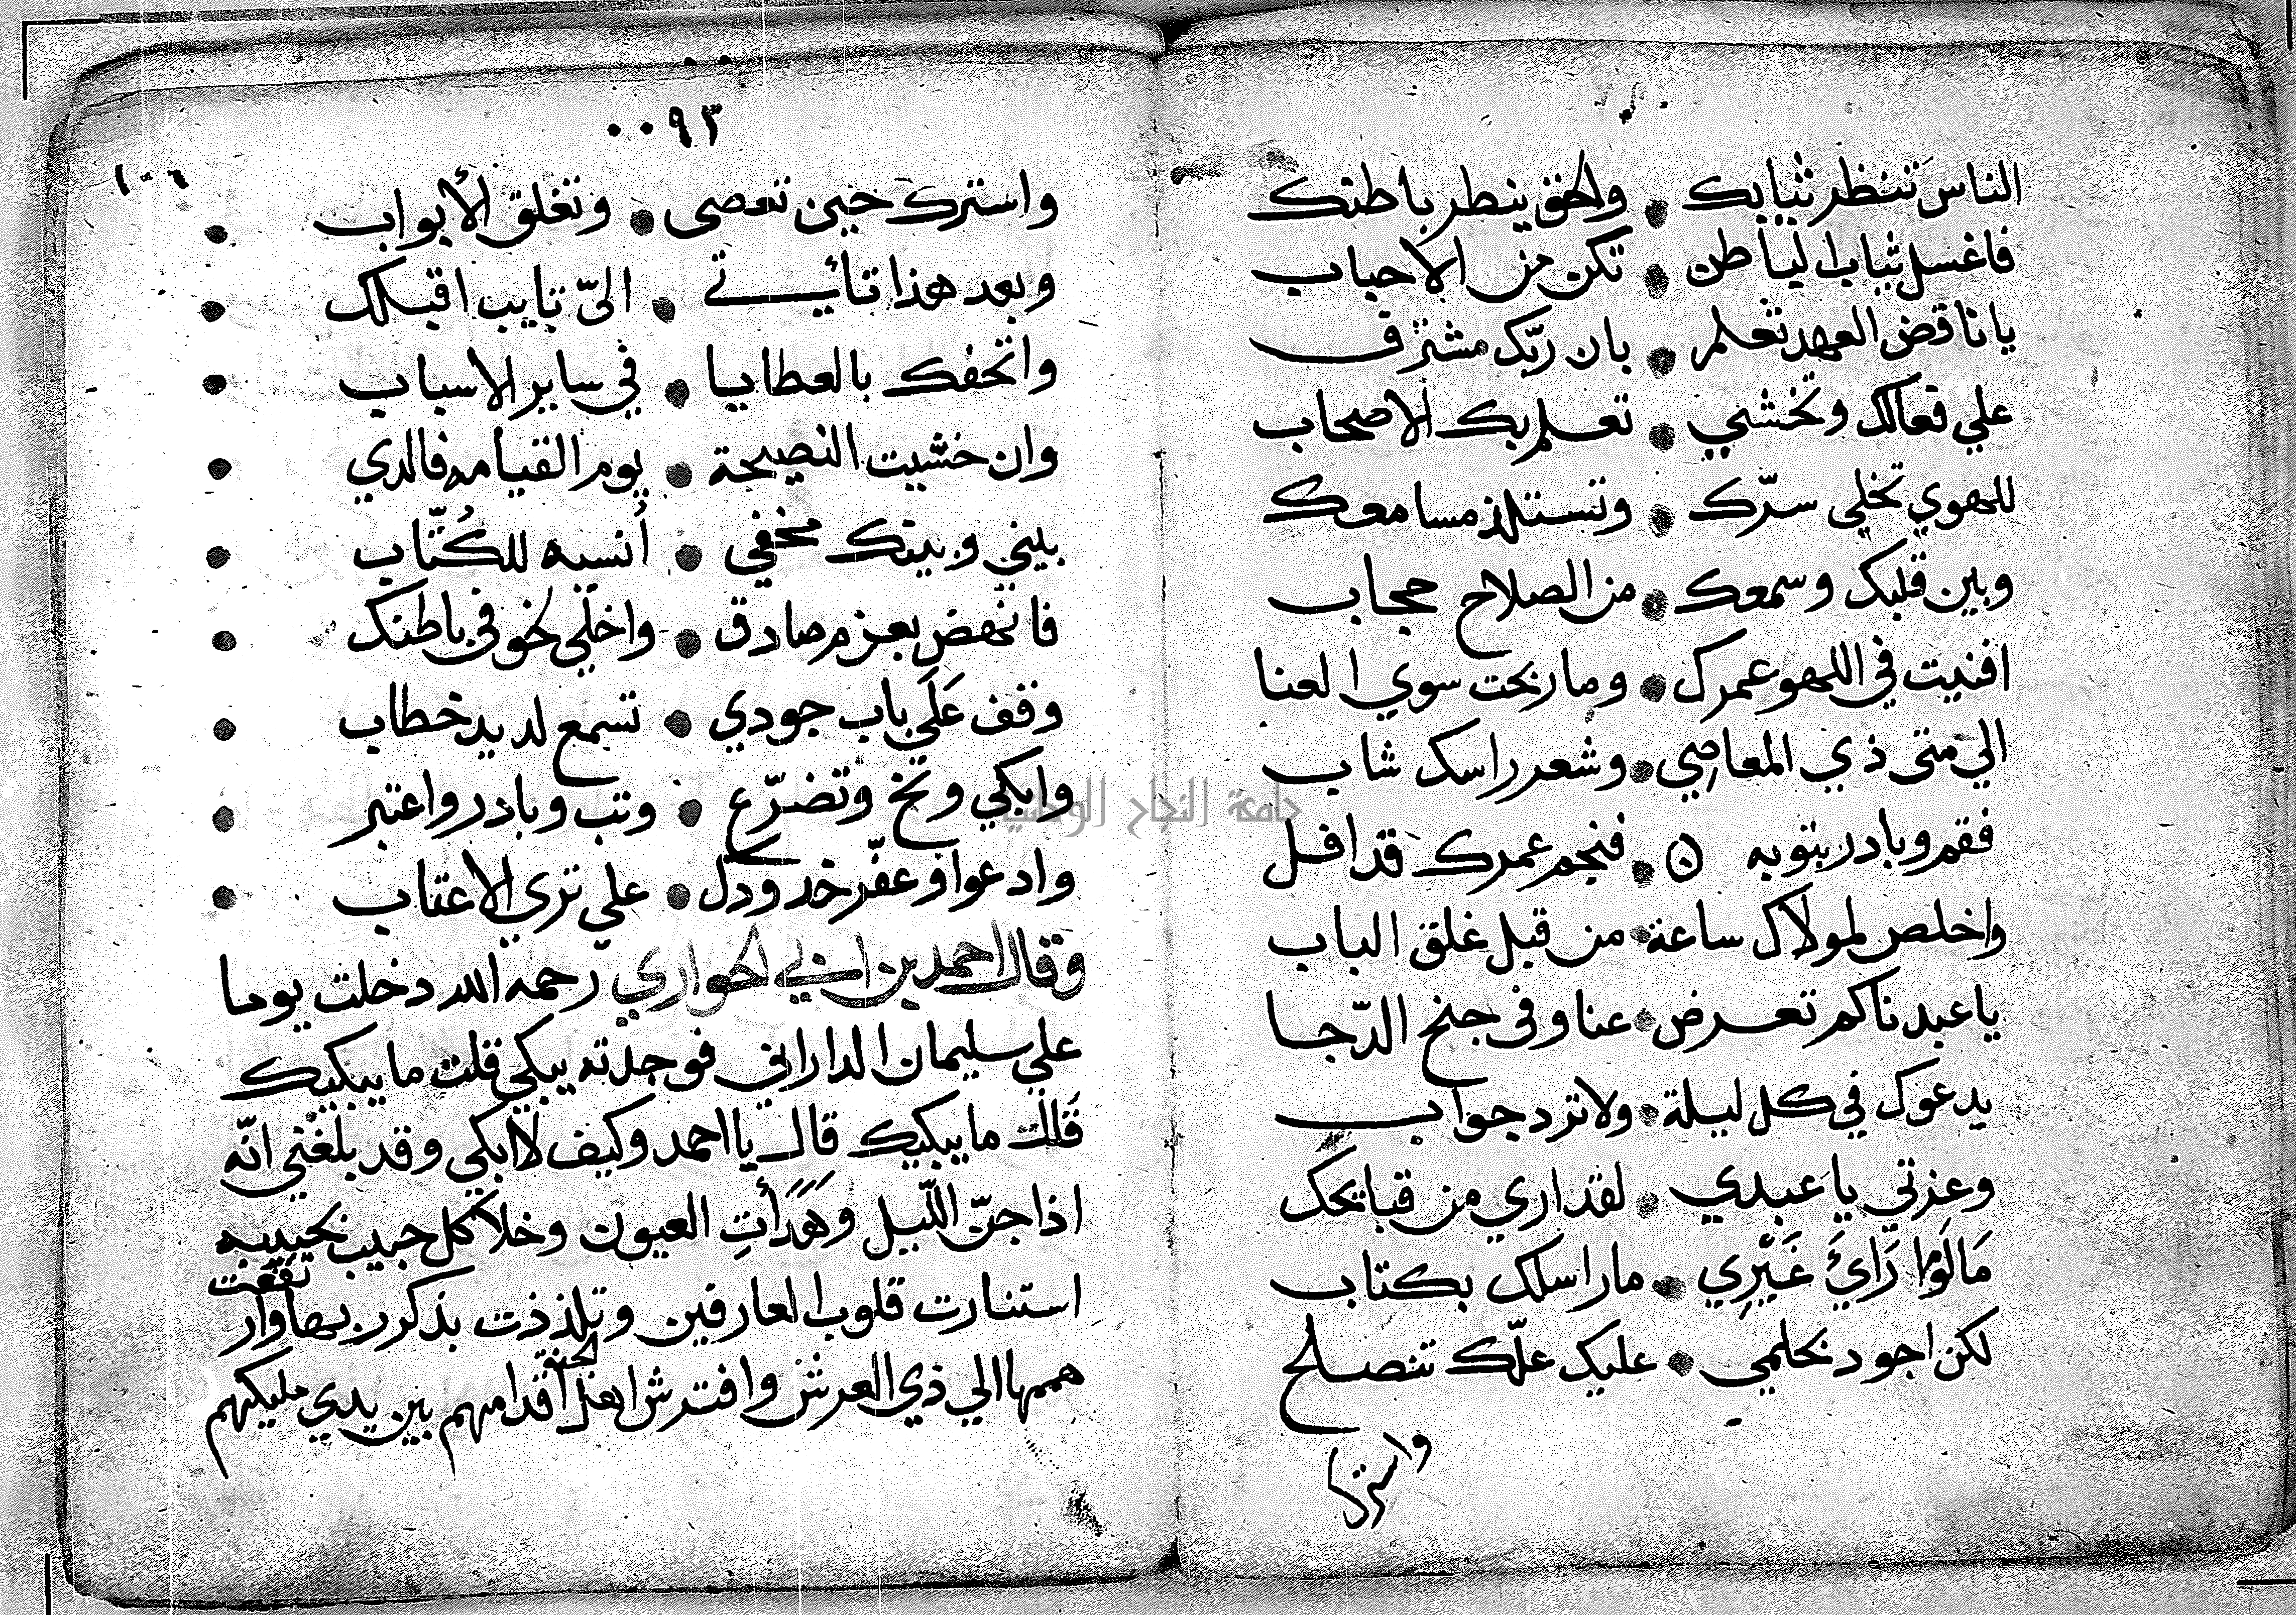 الناس تنظر ثيابك • والحق ينظر باطنك
فاغسل ثياب الباطن • تكن من الاحباب
يا ناقض العهد تعلم • بان ربّك مشترف
علي فعالك وتخشي • تعلم بك الاصحاب
للهوي تخلي سرّك • وتستلذ مسامعك
وبين قلبك وسمعك • من الصلاح حجاب
افنيت في اللهو عمرك • وما ربحت سوي العنا
الي متى ذي المعاصي • وشعر راسك شاب
فقم وبادر بتوبه • فنجم عمرك قد افل
واخلص لمولاك ساعة • من قبل غلق الباب
يا عبدنا كم تعرض • عنا وفي جنح الدّجا
يدعوك في كل ليلة • ولا ترد جواب
وعزتي يا عبدي • لقد اري من قبايحك
مَا لَوْ رَاىَٔ غَيْرِي • ما راسلك بكتاب
لكن اجود بحلمي • عليك علّك تنصلح
واسترك
٠٠٩٣
١٠٦
واسترك حين تعصى • وتغلق الأبواب •
وبعد هذا تأتي • اليّ تايب اقبلك •
واتحفك بالعطايا • في ساير الاسباب •
وان خشيت النصيحة • يوم القيامه فالدي •
بيني وبينك مخفي • أنسيه للكُتّاب •
فانهض بعزم صادق • واخلّي خوفي باطنك •
وقف عَلَي باب جودي • تسمع لديد خطاب •
وابكي ونح وتضرّع • وتب وبادر واعتبر •
وادعوا وعفّر خدودك • علي تري الاعتاب •
وقال احمد بن ابي الحواري رحمه الله دخلت يوما
علي سليمان الداراني فوجدته يبكي قلت ما يبكيك
قلت ما يبكيك قال يا احمد وكيف لا ابكي وقد بلغني انّه
اذا جنّ اللّيل وَهَدَأَتِ العيون وخلا كل حبيب بحبيبه
استنارت قلوب العارفين وتلذذت بذكر ربها وارتفعت
هممها الي ذي العرش وافترش اهل المحبة أقدامهم بين يدي مليكهم